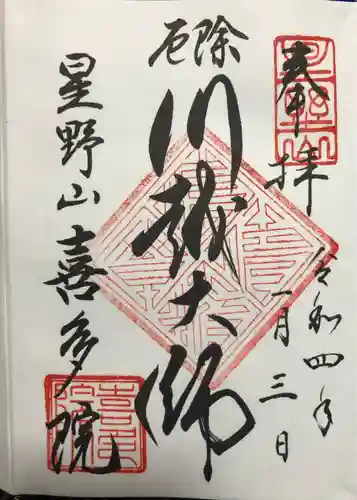 奉拝
令和四年
一月三日
厄除
川越大師
星野山喜多院